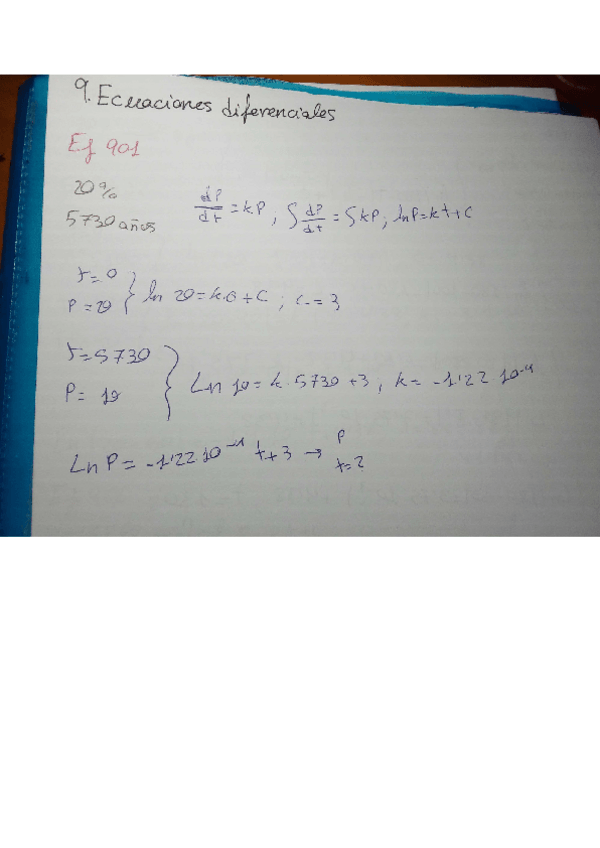 9. Ecuaciones diferenciales
Ej 901
20%
5730 años
dP/dt = kP, ∫ dP/dt = ∫ kP; lnP = kt + C
t = 0
P = 20 } ln 20 = k·0 + C ; C = 3
t = 5730
P = 10 } Ln 10 = k · 5730 + 3, k = -1'22 10⁻⁴
Ln P = -1'22 10⁻⁴ t + 3 → P
t = ?